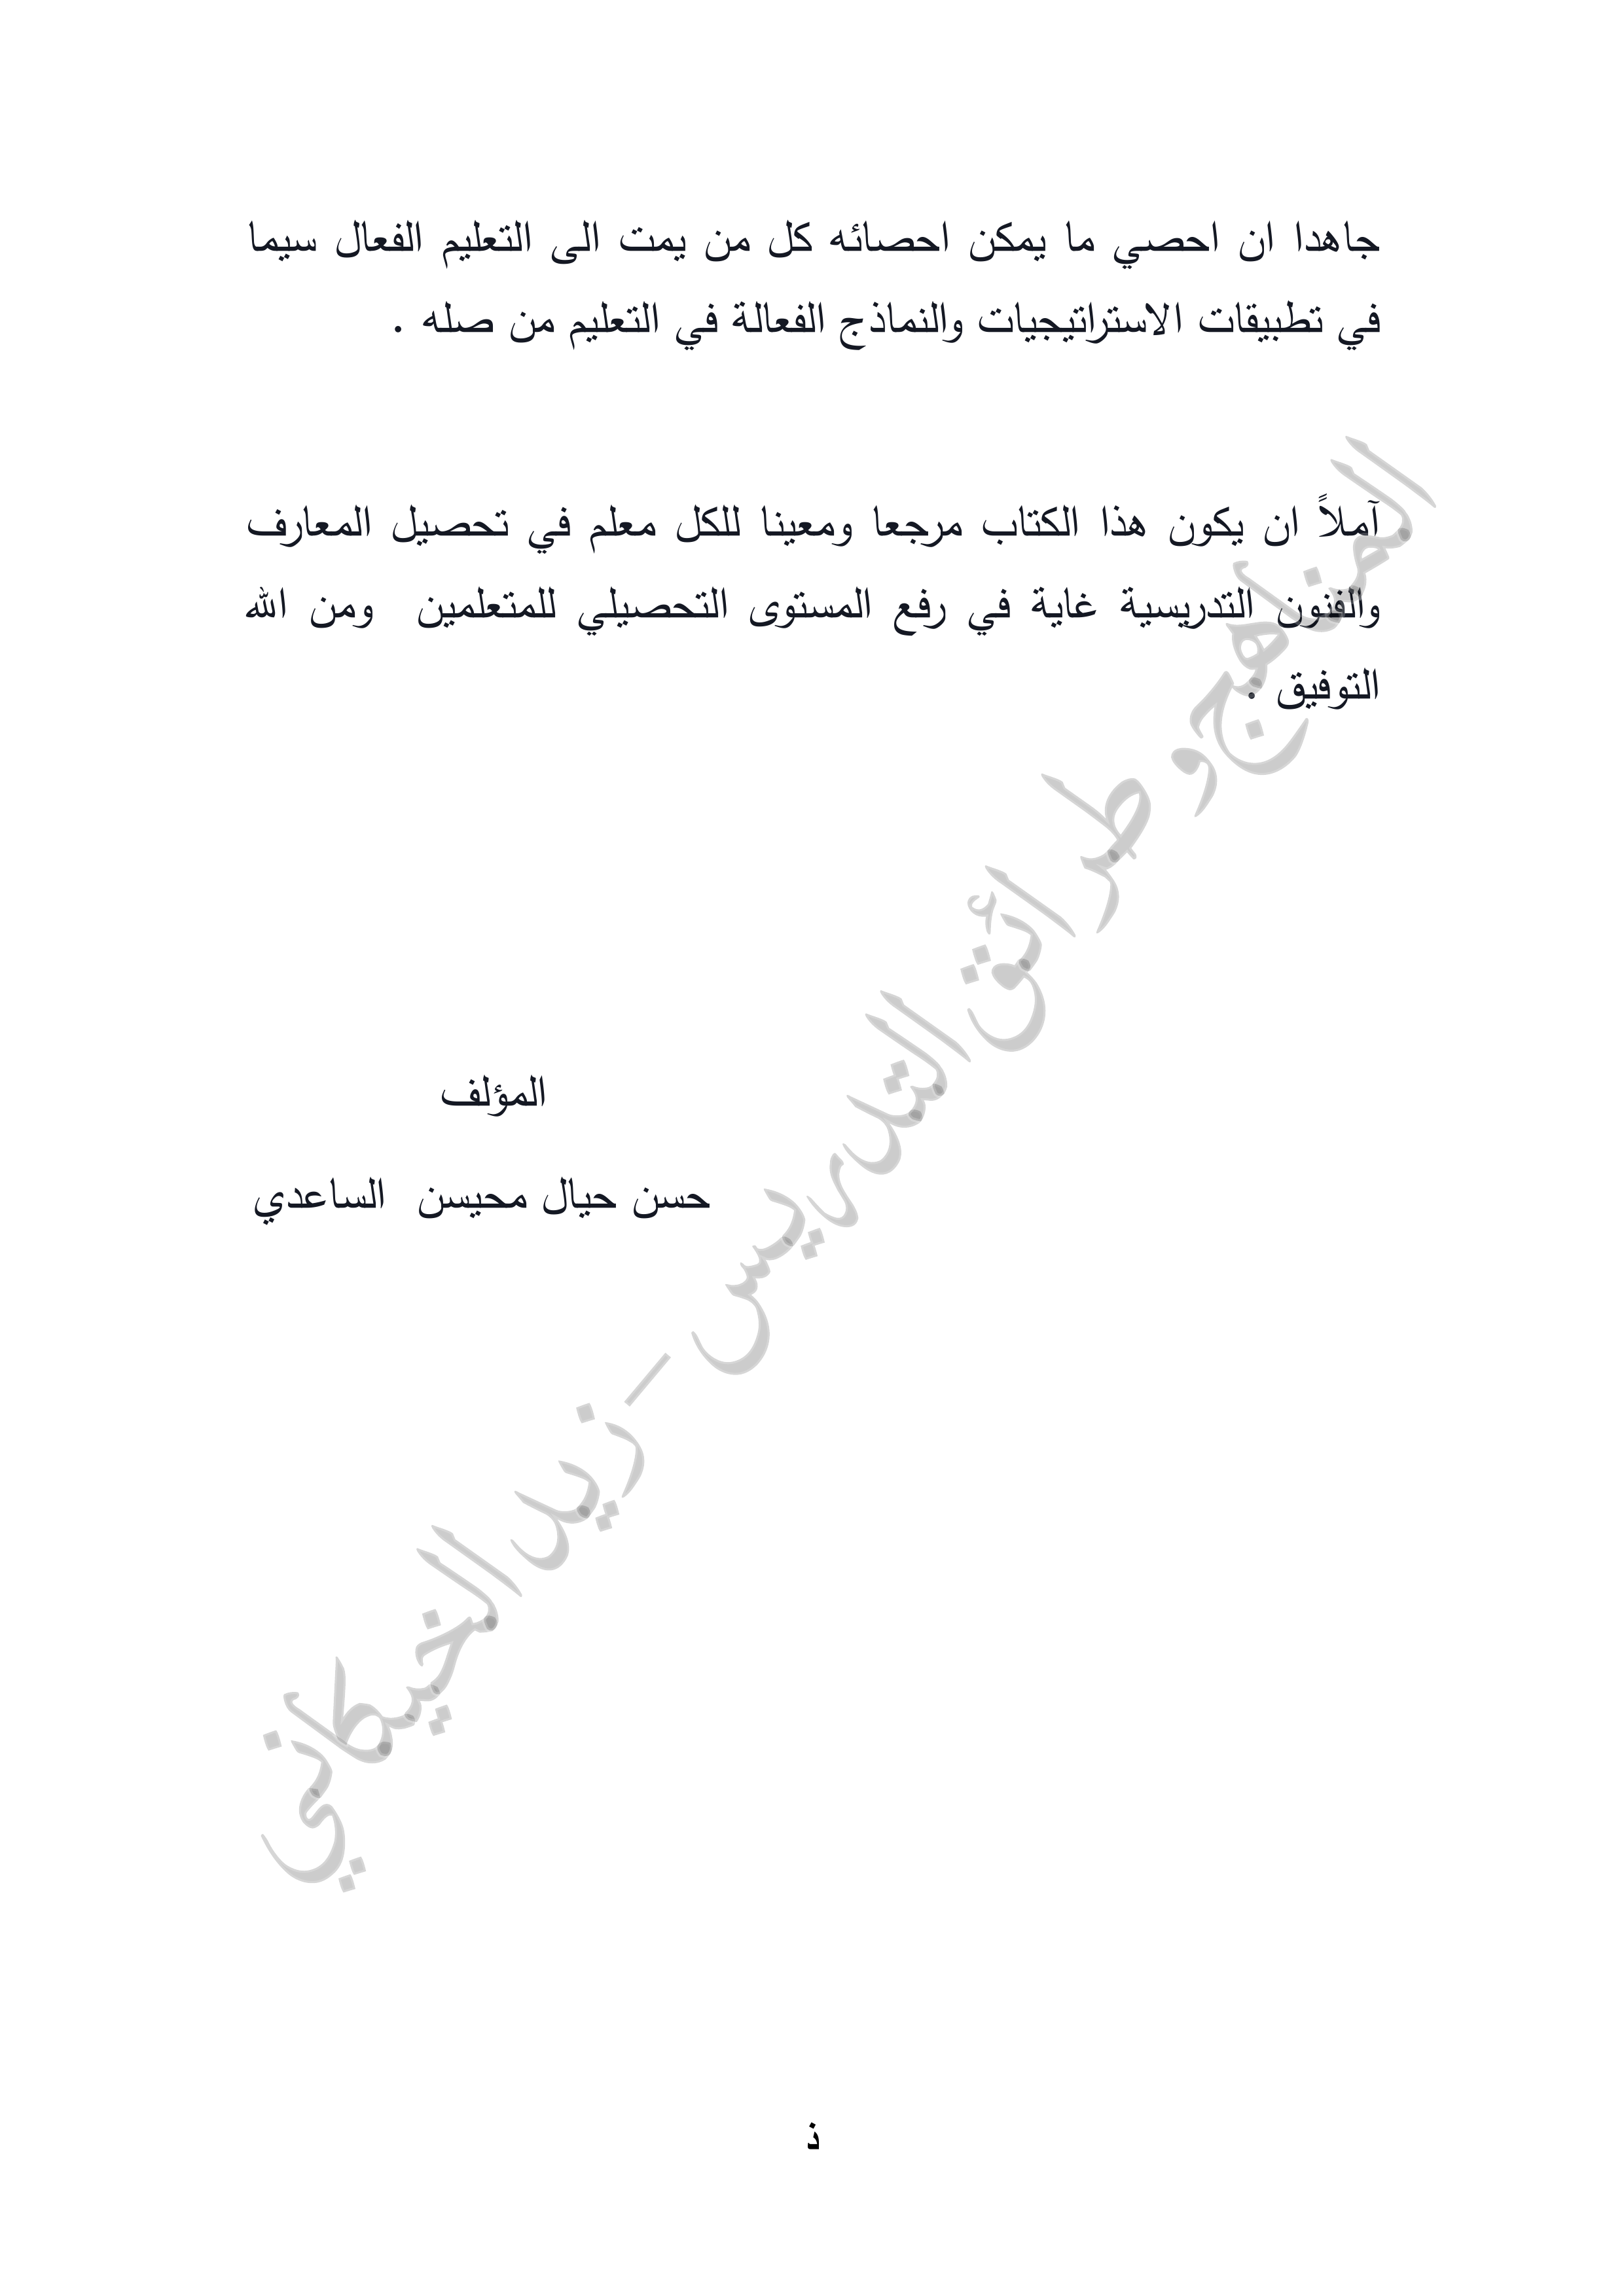 جاهدا ان احصي ما يمكن احصائه كل من يمت الى التعليم الفعال سيما
في تطبيقات الاستراتيجيات والنماذج الفعالة في التعليم من صله .
آملاً ان يكون هذا الكتاب مرجعا ومعينا للكل معلم في تحصيل المعارف
والفنون التدريسية غاية في رفع المستوى التحصيلي للمتعلمين ومن الله
التوفيق .
المؤلف
حسن حيال محيسن الساعدي
المناهج و طرائق التدريس - زيد الخيكاني
ذ